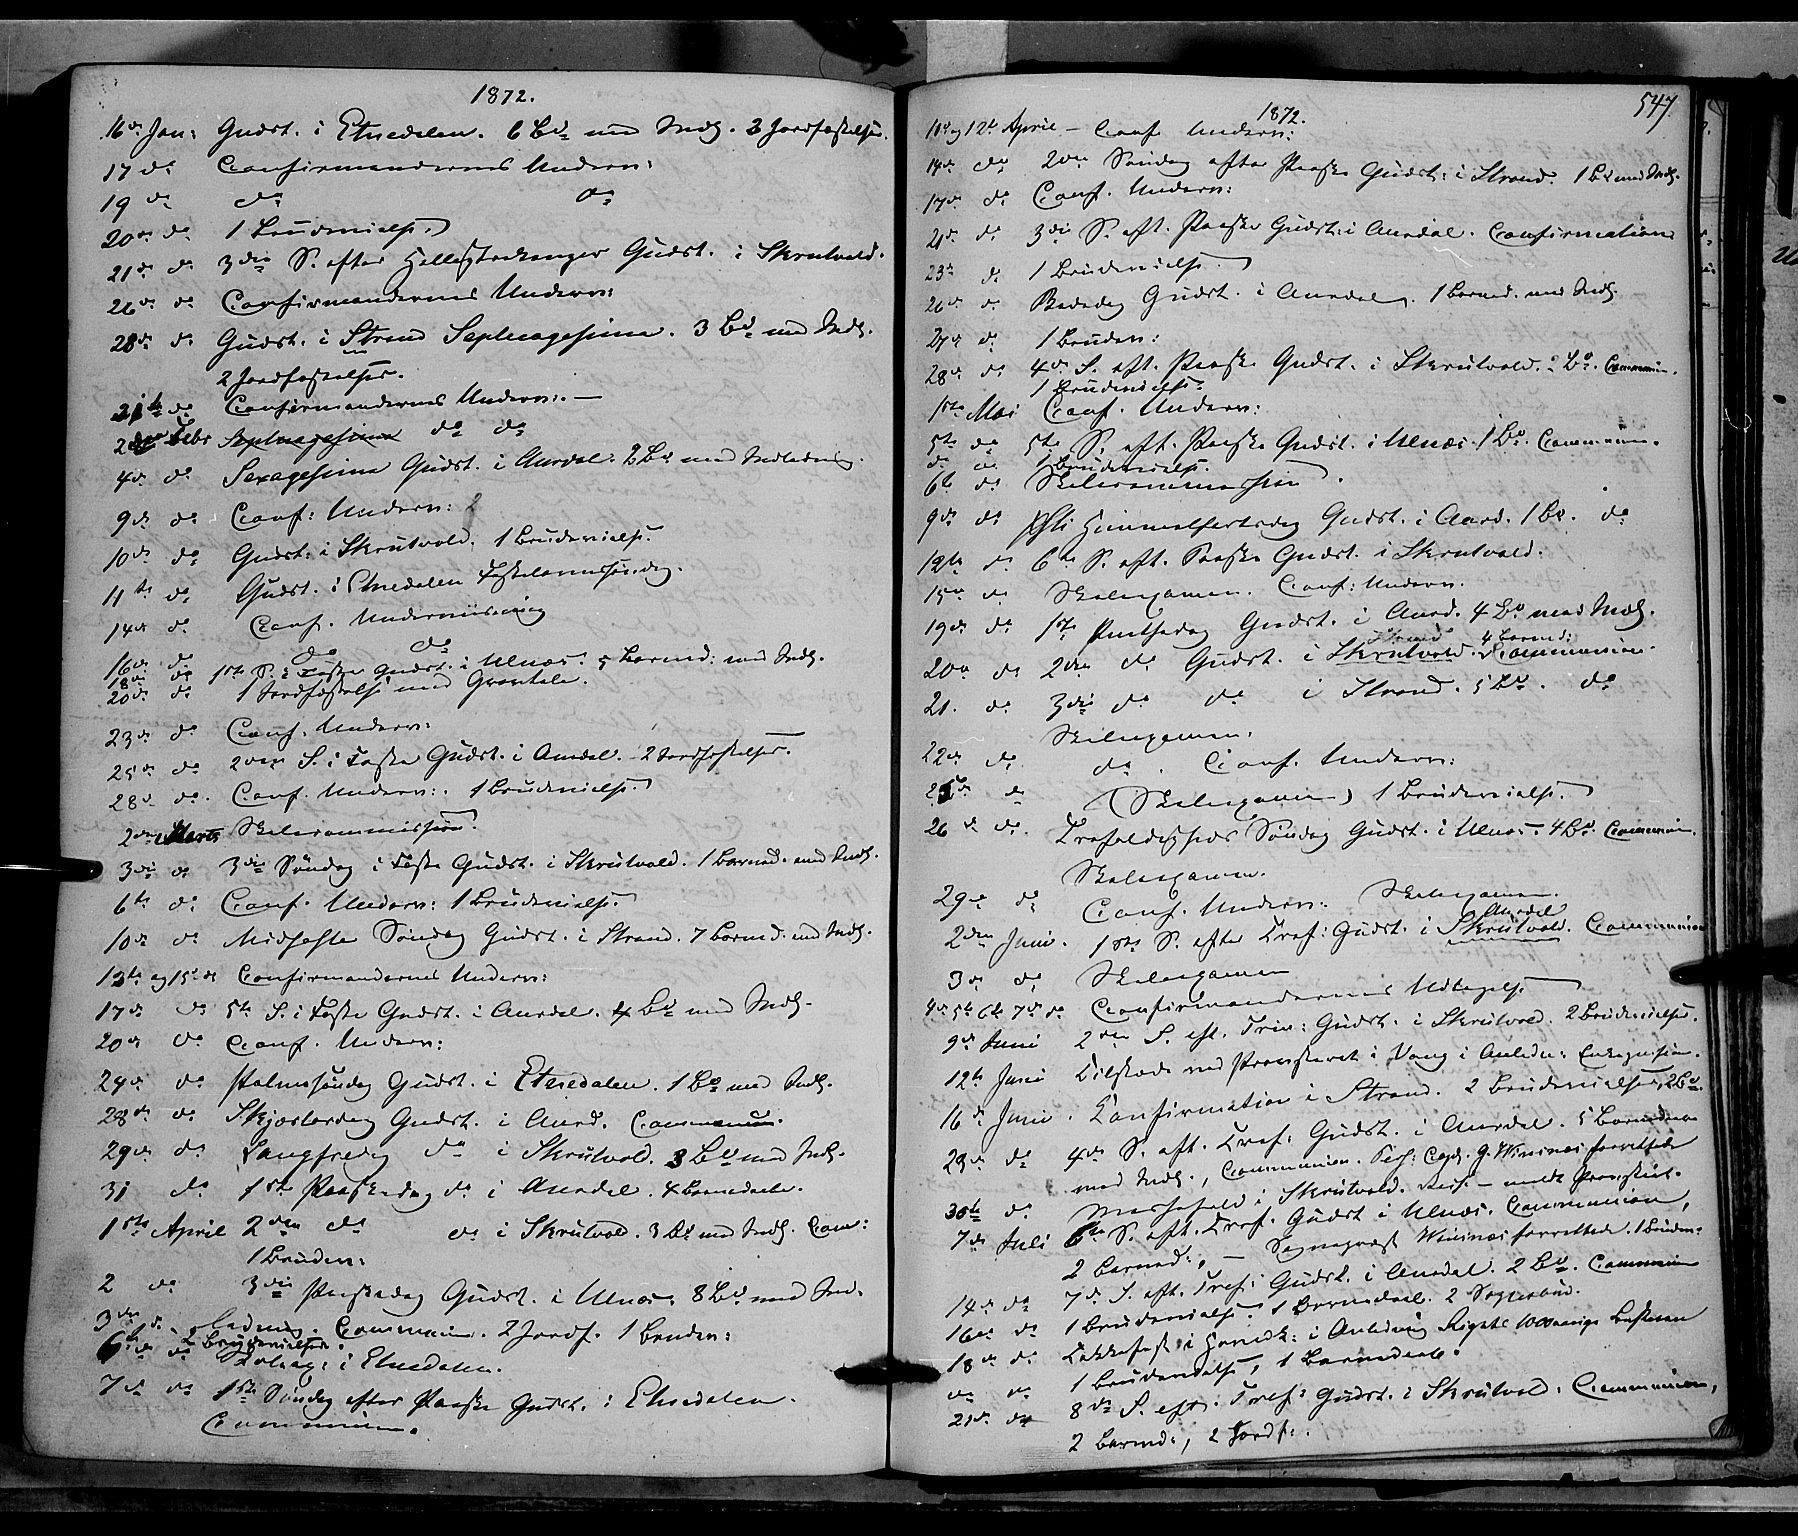 1872.
16de Jan: Gudst. i Etnedalen. 6 Bd med Indl. 3 Jordfæstelser.
17 do Confirmandernes Underv:
19 do do do
20de do 1 Brudevielse.
21de do 3die S. efter Helligtrekonger Gudst. i Skrutvold.
26de do Confirmandernes Underv:
28de do Gudst. i Strand Septuagesima. 3 Bd med Indl.
2 Jordfæstelser.
31te do Confirmandernes Underv: —
2den Febr Septuagesima do do
4de do Sexagesima Gudst. i Aurdal. 2 Bd med Indledning.
9de do Conf: Underv:
10de do Gudst: i Skrutvold. 1 Brudevielse.
11te do Gudst. i Etnedalen Fastelavnssøndag.
14de do Conf. Underviisning
16de do do do
18de do 1ste S. i Faste Gudst. i Ulnæs. 5 Barned: med Indl.
20de do 1 Jordfæstelse med Gravtale.
23de do Conf. Underv:
25de do 2den S. i Faste Gudst. i Aurdal. 2 Jordfæstelser.
28de do. Conf. Underv: 1 Brudevielse.
2den Marts Skolecommission.
3die do 3die Søndag i Faste Gudst. i Skrutvold. 1 Barned. med Indl.
6te do Conf. Underv: 1 Brudevielse.
10de do Midfaste Søndag Gudst. i Strand. 7 Barned. med Indl.
13te og 15de do Confirmandernes Underv:
17de do 5te S. i Faste Gudst. i Aurdal. 4 Bd med Indl.
20de do Conf. Underv:
24de do Palmesøndag Gudst. i Etnedalen. 1 Bd med Indl.
28de do Skjærtorsdag Gudst. i Aurd. Communion.
29de do Langfredag do i Skrutvold. 3 Bd med Indl.
31 do 1ste Paaskedag do i Aurdal. 4 Barnedaabe.
1ste April 2den do do i Skrutvold. 3 Bd med Indl. Com:
1 Bruden:
2 do 3die Paaskedag Gudst. i Ulnæs. 8 Bd med Ind-
3die do. ledning. Communion. 2 Jordf. 1 Bruden:
2 Brudevielser.
6te do i Etnedalen.
7de do 1ste Søndag efter Paaske Gudst. i Etnedalen.
Communion.
547.
1872.
10de og 12te April – Conf. Underv:
14de do 2den Søndag efter Paaske Gudst: i Strand. 1 Bd med Indl.
17de do Conf. Underv:
21de do 3die S. eft. Paaske Gudst: i Aurdal. Confirmation
23de do 1 Brudevielse.
26de do Bededag Gudst. i Aurdal. 1 Barned. med Indl.
27de do 1 Bruden:
28de do 4de S. eft. Paaske Gudst. i Skrutvold. 2 Bd. Communion.
1 Brudevielse.
1ste Mai Conf. Underv:
5te do 5te S. eft. Paaske Gudst. i Ulnæs. 1 Bd. Communion.
do do 1 Brudevielse.
6te do Skolecommission.
9de do Chsti Himmelfartsdag Gudst. i Aurd. 1 Bd. do
12te do 6te S. eft. Paaske Gudst. i Skrutvold.
15de do Skolexamen. Conf: Underv.
19de do 1ste Pintsedag Gudst. i Aurd. 4 Bd med Indl.
Strand 4 Barned:
20de do 2den do Gudst. i Skrutvold. Communion.
21. do 3die do do i Strand. 5 Bd. do
Skolexamen.
22de do do. Conf. Underv:
25de do (Skolexamen) 1 Brudevielse.
26de do. Trefoldigheds Søndag Gudst. i Ulnæs. 4 Bd. Communion.
Skolexamen.
29de do Conf. Underv: Skolexamen.
Aurdal
2den Juni. 1ste S. efter Tref: Gudst. i Skrutvold. Communion
3de do Skolexamen
4de 5te 6te 7de do Confirmandernes Udtagelse
9de Juni 2den S. eft. Trin: Gudst. i Skrutvold. 2 Brudevielser.
12te Juni Tilstede ved Provstevet i Vang i Anledn:
16de Juni. Confirmation i Strand. 2 Brudevielser, 2 Bd.
23de do 4de S. eft. Tref: Gudst. i Aurdal. 5 Barnedaab
med Indl., Communion. Pers: Cap. G. Winsnæs forrettede
30te do Messefald i Skrutvold. Reise – medt Provstiet.
7de Juli 6te S. eft. Tref. Gudst i Ulnæs. Communion,
2 Barned:, – Sognepræst Winsnæs forrettede. 1 Bruden:
14de do 7de S. eft. Tref: Gudst. i Aurdal. 2 Bd. Communion
16de do 1 Brudevielse. 1 Barnedaab. 2 Sognebud.
18de do Takkefest i i Anledning Rigets 1000aarige Bestaaen
do do 1 Brudevielse, 1 Barnedaab.
21de do 8de S. eft. Tref: Gudst. i Skrutvold. Communion,
2 Barned:, 2 Jordf:.